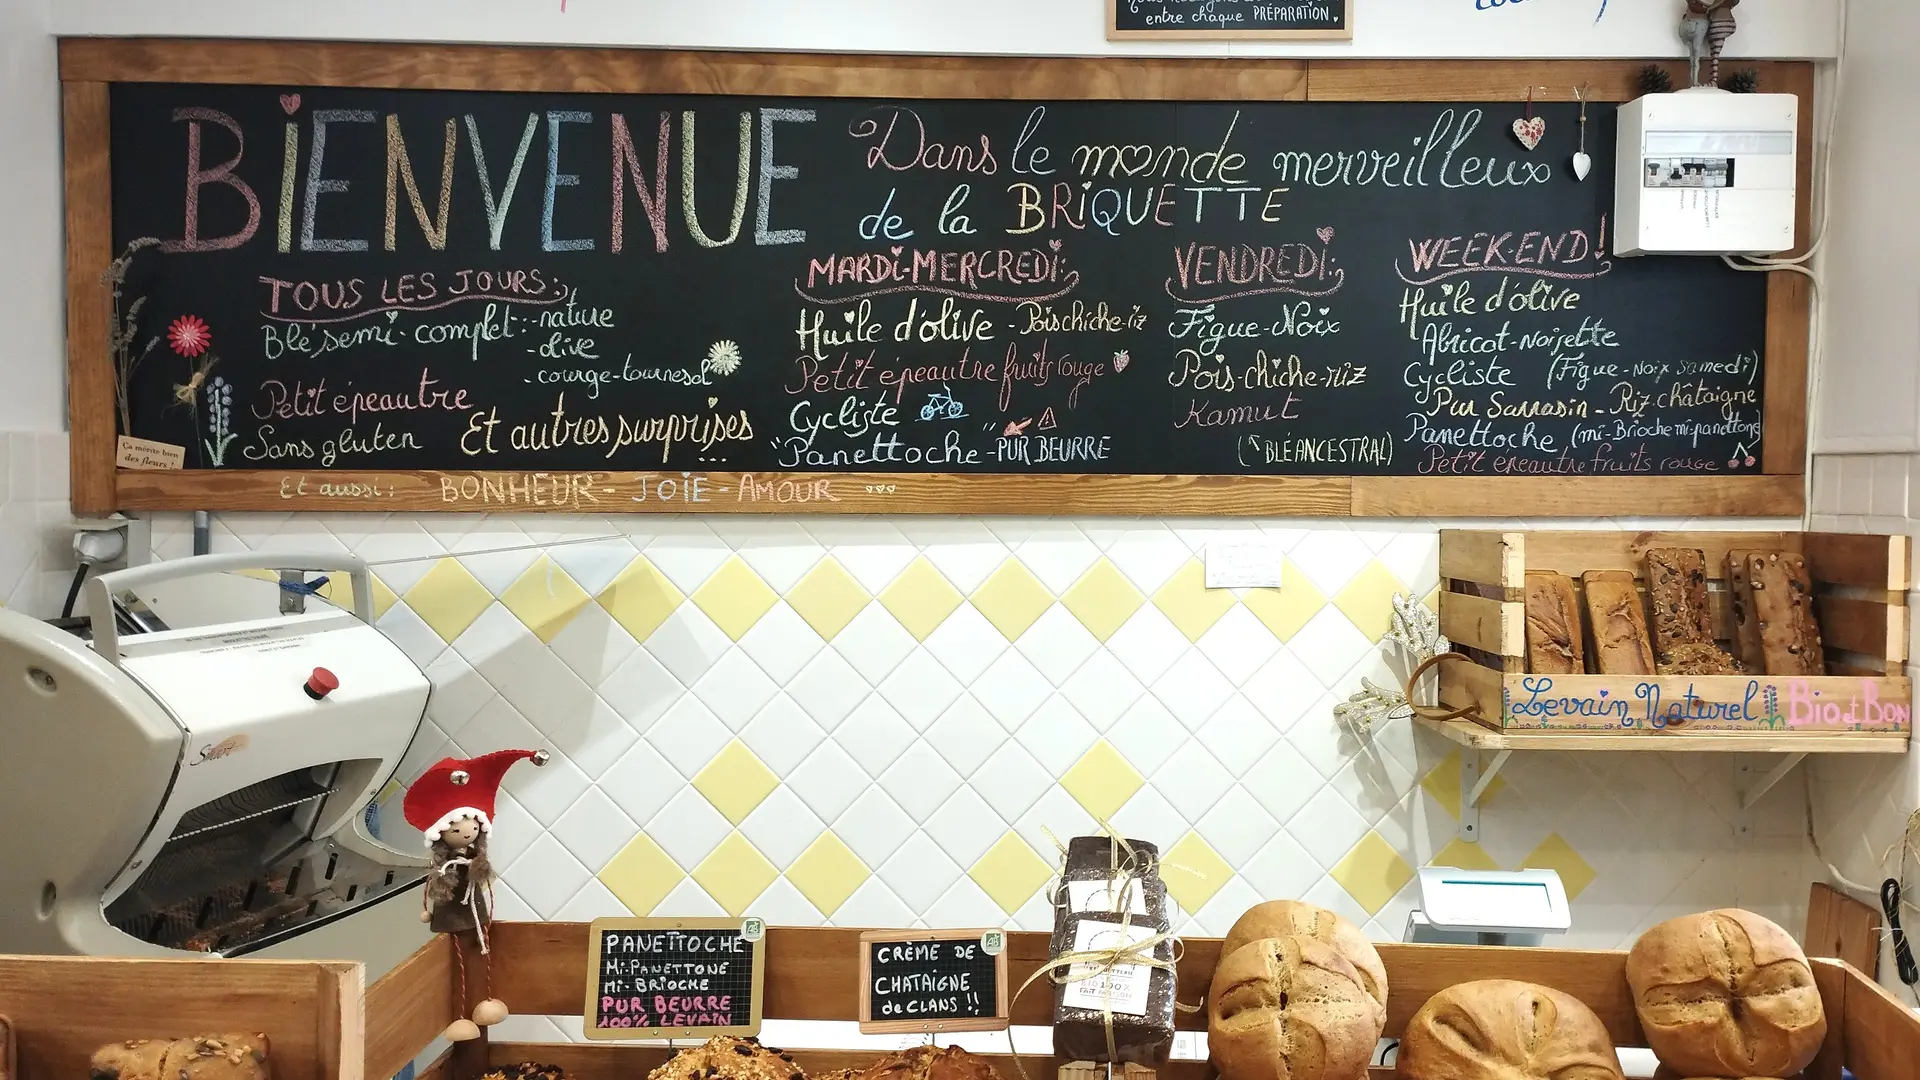 entre chaque PRÉPARATION.
BiENVENUE
Dans le monde merveilleux
de la BRiQUETTE
TOUS LES JOURS:
Blé semi-complet: -nature
-olive
-courge-tournesol
Petit épeautre
Sans gluten
Et autres surprises
...
MARDi-MERCREDi:
Huile d'olive - Pois chiche-riz
Petit épeautre fruits rouge
Cycliste
"Panettoche" -PUR BEURRE
VENDREDi:
Figue-Noix
Pois-chiche-riz
Kamut
(BLÉ ANCESTRAL)
WEEK-END!
Huile d'olive
Abricot-noisette
Cycliste (Figue-Noix Samedi)
Pur Sarrasin - Riz.châtaigne
Panettoche (mi-Brioche mi-panettone)
Petit épeautre fruits rouge
Ça mérite bien
des fleurs !
Et aussi: BONHEUR - JOiE - AMOUR
Levain Naturel Bio et Bon
PANETTOCHE
Mi-PANETTONE
Mi-BRiOCHE
PUR BEURRE
100% LEVAIN
AB
CRÈME DE
CHATAIGNE
de CLANS !!
AB